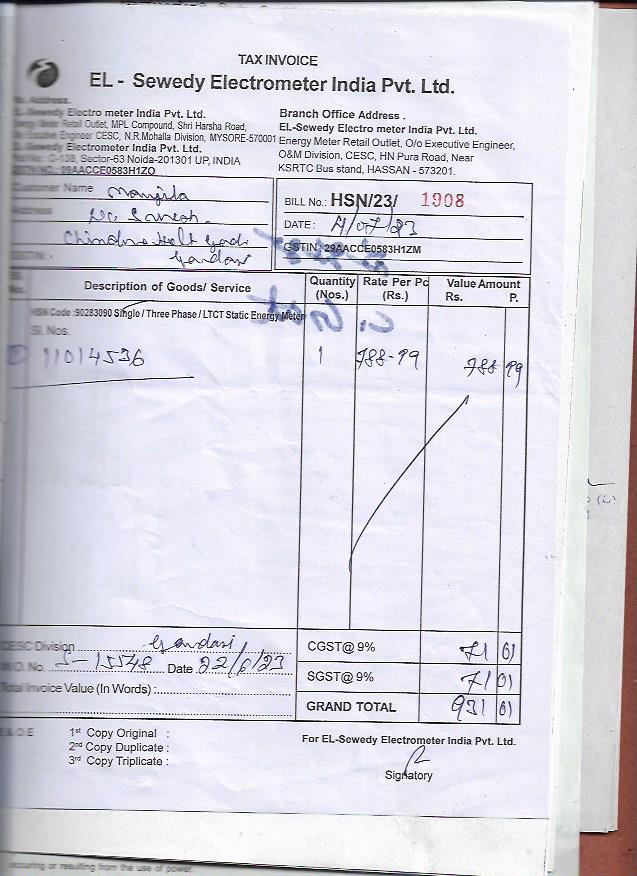 TAX INVOICE
EL - Sewedy Electrometer India Pvt. Ltd.
Address.
EL-Sewedy Electro meter India Pvt. Ltd.
Energy Meter Retail Outlet, MPL Compound, Shri Harsha Road,
Executive Engineer CESC, N.R.Mohalla Division, MYSORE-570001
EL-Sewedy Electrometer India Pvt. Ltd.
C-138, Sector-63 Noida-201301 UP, INDIA
29AACCE0583H1ZO
Branch Office Address .
EL-Sewedy Electro meter India Pvt. Ltd.
Energy Meter Retail Outlet, O/o Executive Engineer,
O&M Division, CESC, HN Pura Road, Near
KSRTC Bus stand, HASSAN - 573201.
Customer Name Manjula
Address
Gandasi
BILL No.: HSN/23/ 1908
DATE : /07/23
GSTIN: 29AACCE0583H1ZM
No. Description of Goods/ Service Quantity (Nos.) Rate Per Pc (Rs.) Value Amount Rs. P.
HSN Code :90283090 Single / Three Phase / LTCT Static Energy Meter
Sl. Nos.
11014536 1 788-99 788 99
CESC Division Gandasi
No. S-15548 Date 22/6/23
Total Invoice Value (In Words) :
CGST@ 9% 71 01
SGST@ 9% 71 01
GRAND TOTAL 931 01
E & O E
1st Copy Original :
2nd Copy Duplicate :
3rd Copy Triplicate :
For EL-Sewedy Electrometer India Pvt. Ltd.
Signatory
occuring or resulting from the use of power.